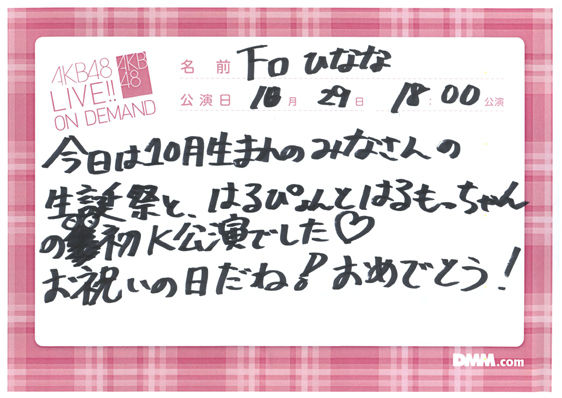 AKB48
LIVE!!
ON DEMAND
AKB
48
名前 下口ひなな
公演日 10月 29日 18:00公演
今日は10月生まれのみなさんの
生誕祭と、はるぴょんとはるもっちゃん
の初K公演でした♡
お祝いの日だね!おめでとう!
DMM.com